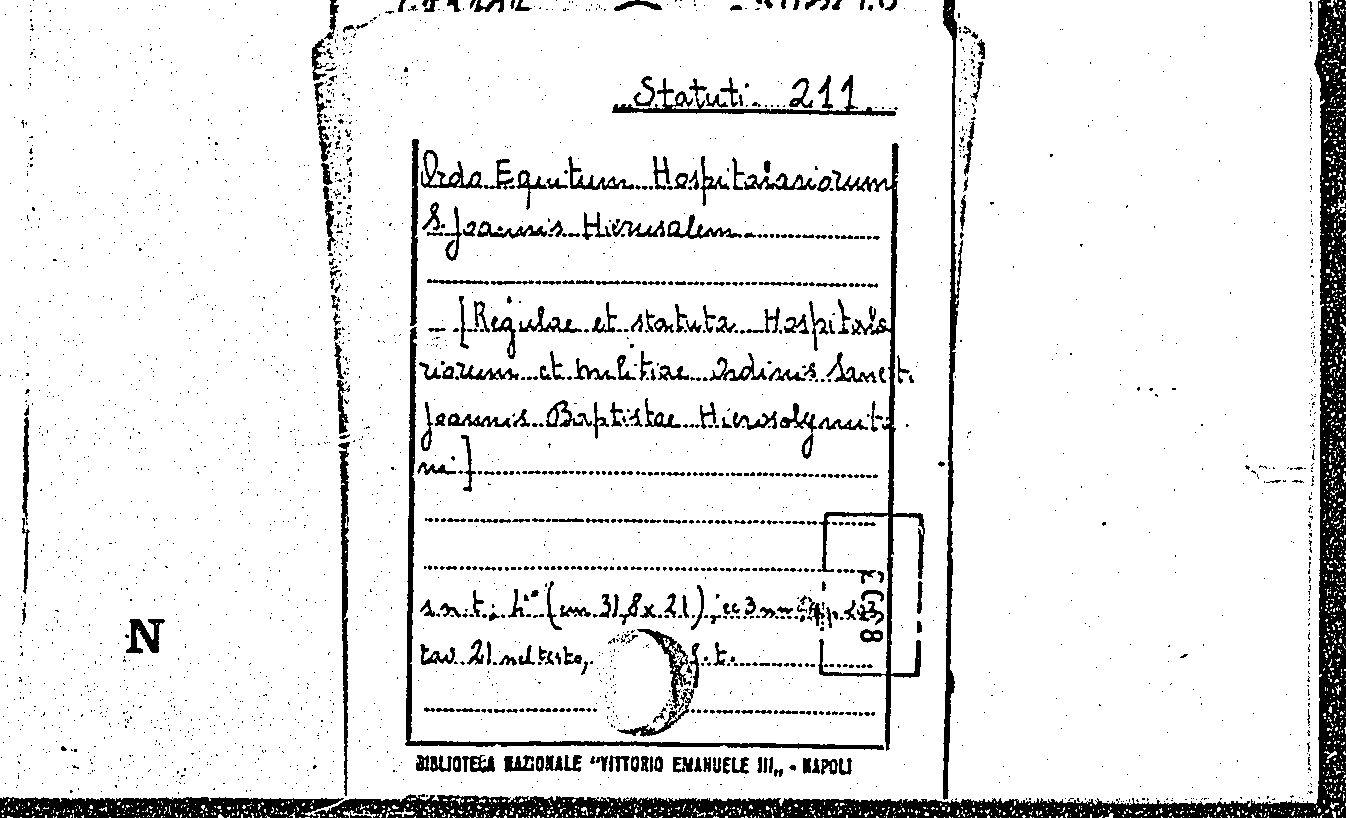 Statuti. 211.
Ordo Equitum Hospitalariorum
S. Joannis Hierusalem
[Regulae et statuta Hospitala
riorum et militiae Ordinis Sancti
Joannis Baptistae Hierosolymita
ni]
s.n.t.; (cm 31,8x21); cc 3 nn
tav. 21 nel testo, f.t.
8303
N
BIBLIOTECA NAZIONALE "VITTORIO EMANUELE III„ - NAPOLI